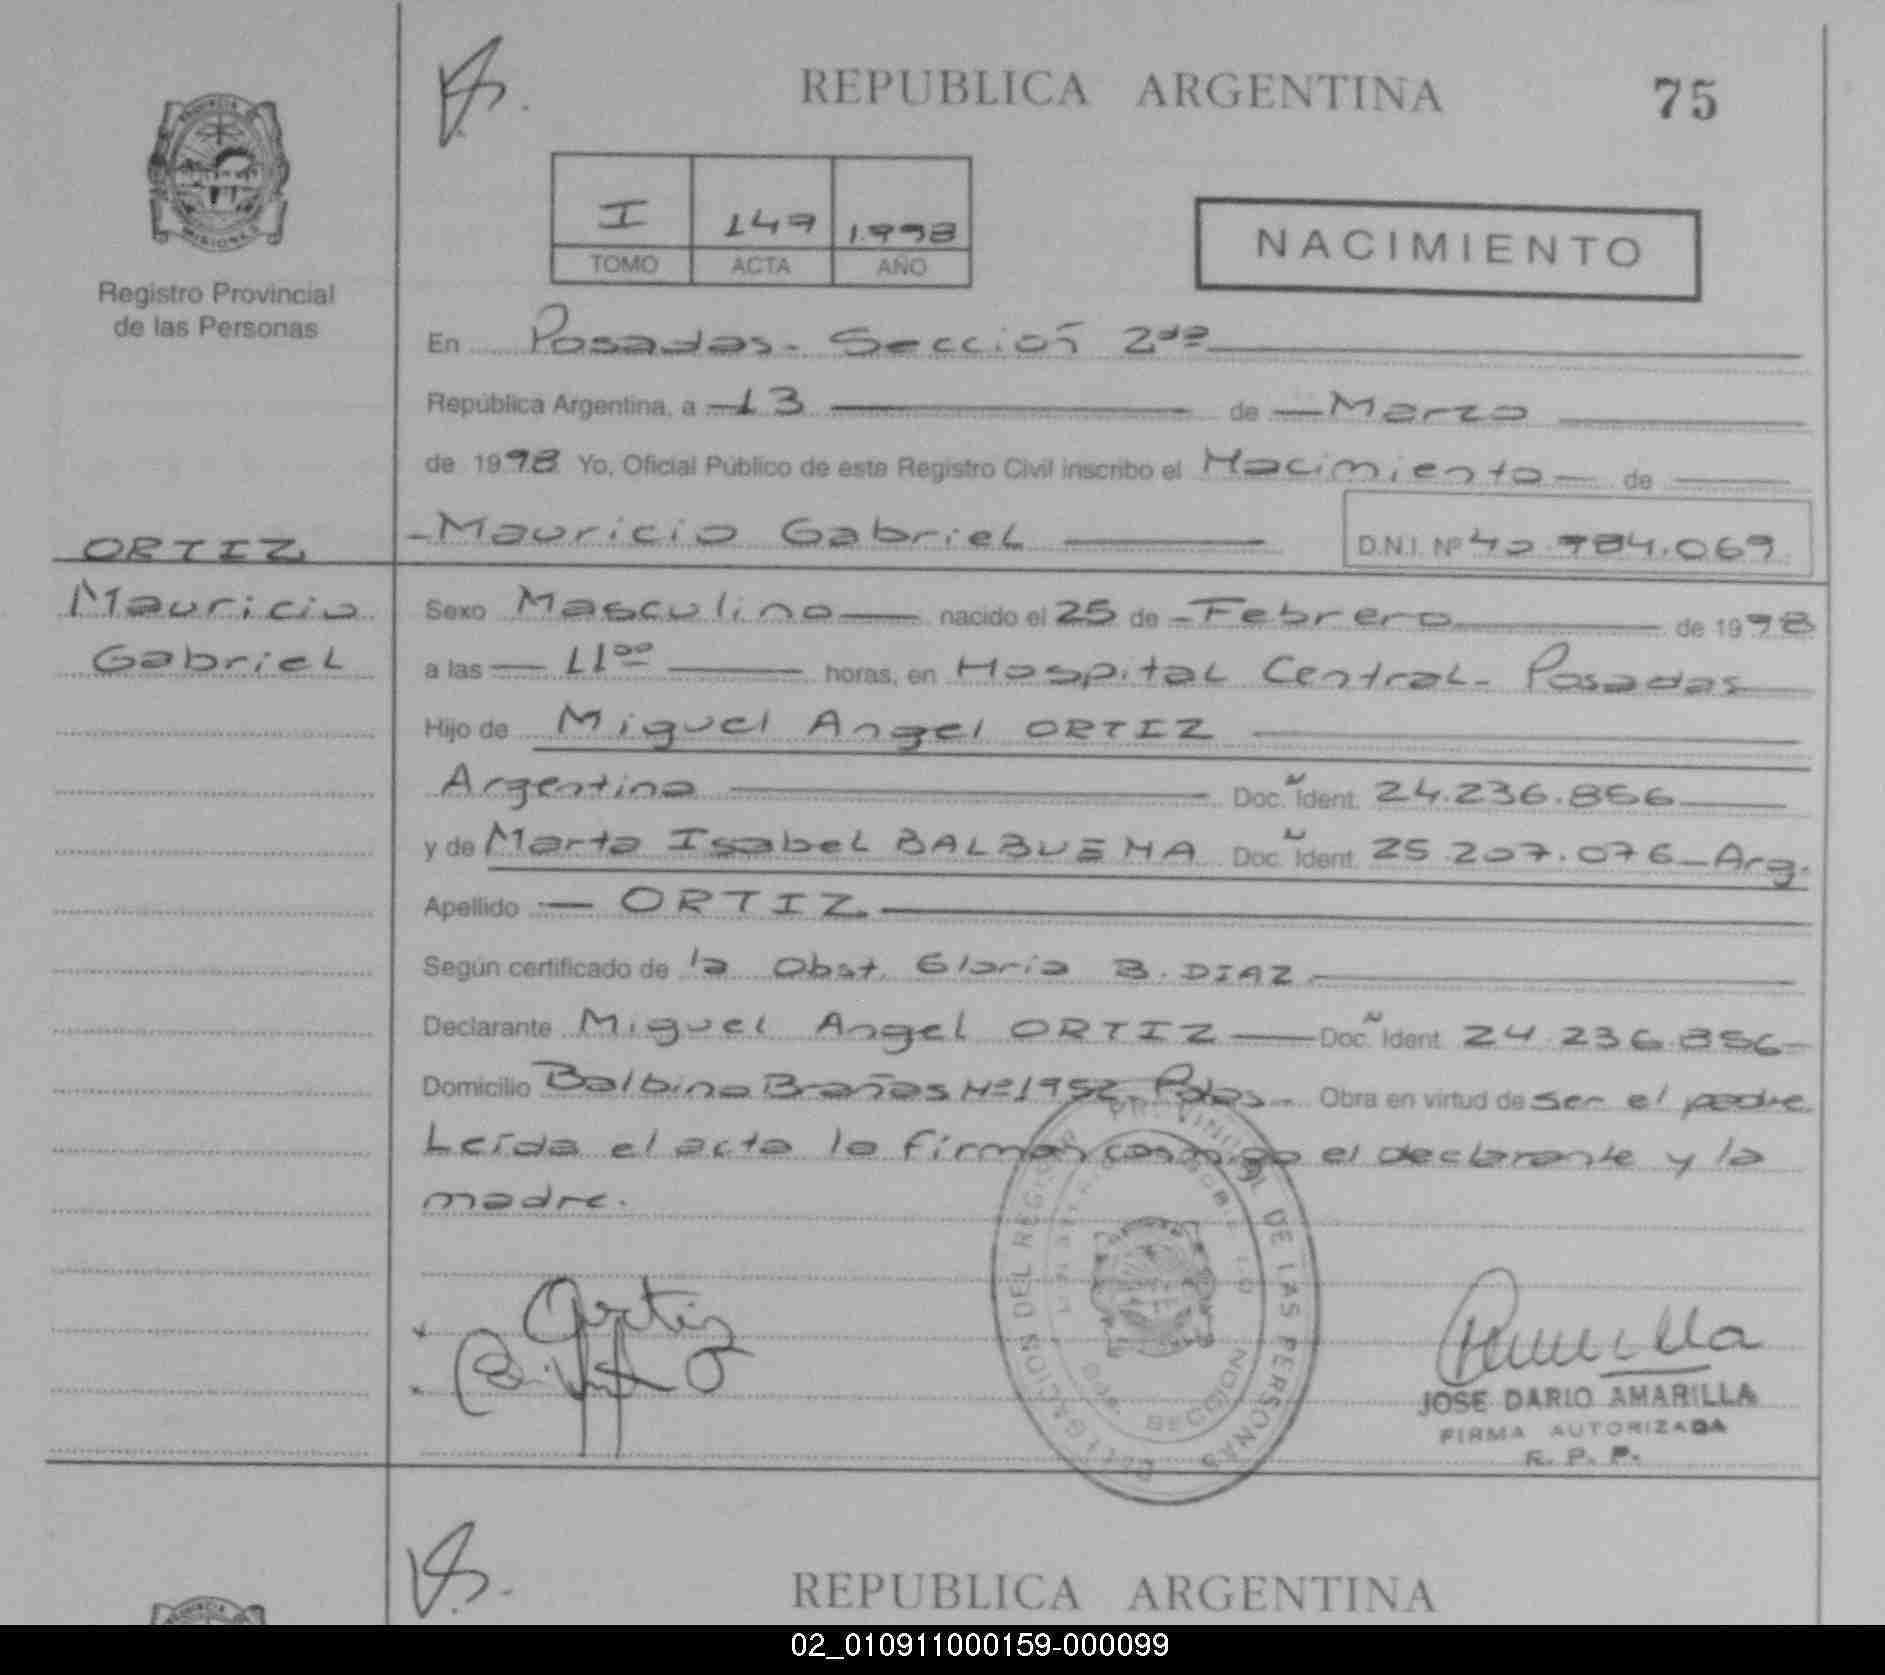 REPUBLICA ARGENTINA
75
PROVINCIA
MISIONES
Registro Provincial
de las Personas
I 147 1.998
TOMO ACTA AÑO
NACIMIENTO
En Posadas- Sección 2da
República Argentina, a 13 de Marzo
de 1998 Yo, Oficial Público de este Registro Civil inscribo el Nacimiento de
ORTIZ
Mauricio
Gabriel
Mauricio Gabriel D.N.I. Nº 40.984.069
Sexo Masculino nacido el 25 de Febrero de 1998
a las 11⁰⁰ horas, en Hospital Central- Posadas
Hijo de Miguel Angel ORTIZ
Argentino Doc. Ident. 24.236.856
y de Marta Isabel BALBUENA Doc. Ident. 25.207.076-Arg.
Apellido ORTIZ
Según certificado de la Obst. Gloria B. DIAZ
Declarante Miguel Angel ORTIZ Doc. Ident. 24.236.856
Domicilio Balbino Brañas Nº 1952- Pdas- Obra en virtud de ser el padre
Leída el acta la firman conmigo el declarante y la
madre.
DELEGACION DEL REGISTRO PROVINCIAL DE LAS PERSONAS
Ortiz
JOSE DARIO AMARILLA
FIRMA AUTORIZADA
R. P. P.
REPUBLICA ARGENTINA
02_010911000159-000099